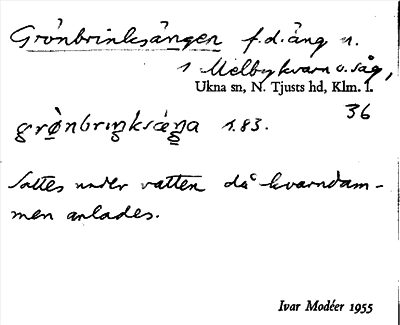 Grönbrinksängen f.d. äng n.
1 Melby kvarn o. såg,
Ukna sn, N. Tjusts hd, Klm. l.
36
grö̀nbriŋksǽŋa 1.83.
Sattes under vatten då kvarndam-
men anlades.
Ivar Modéer 1955